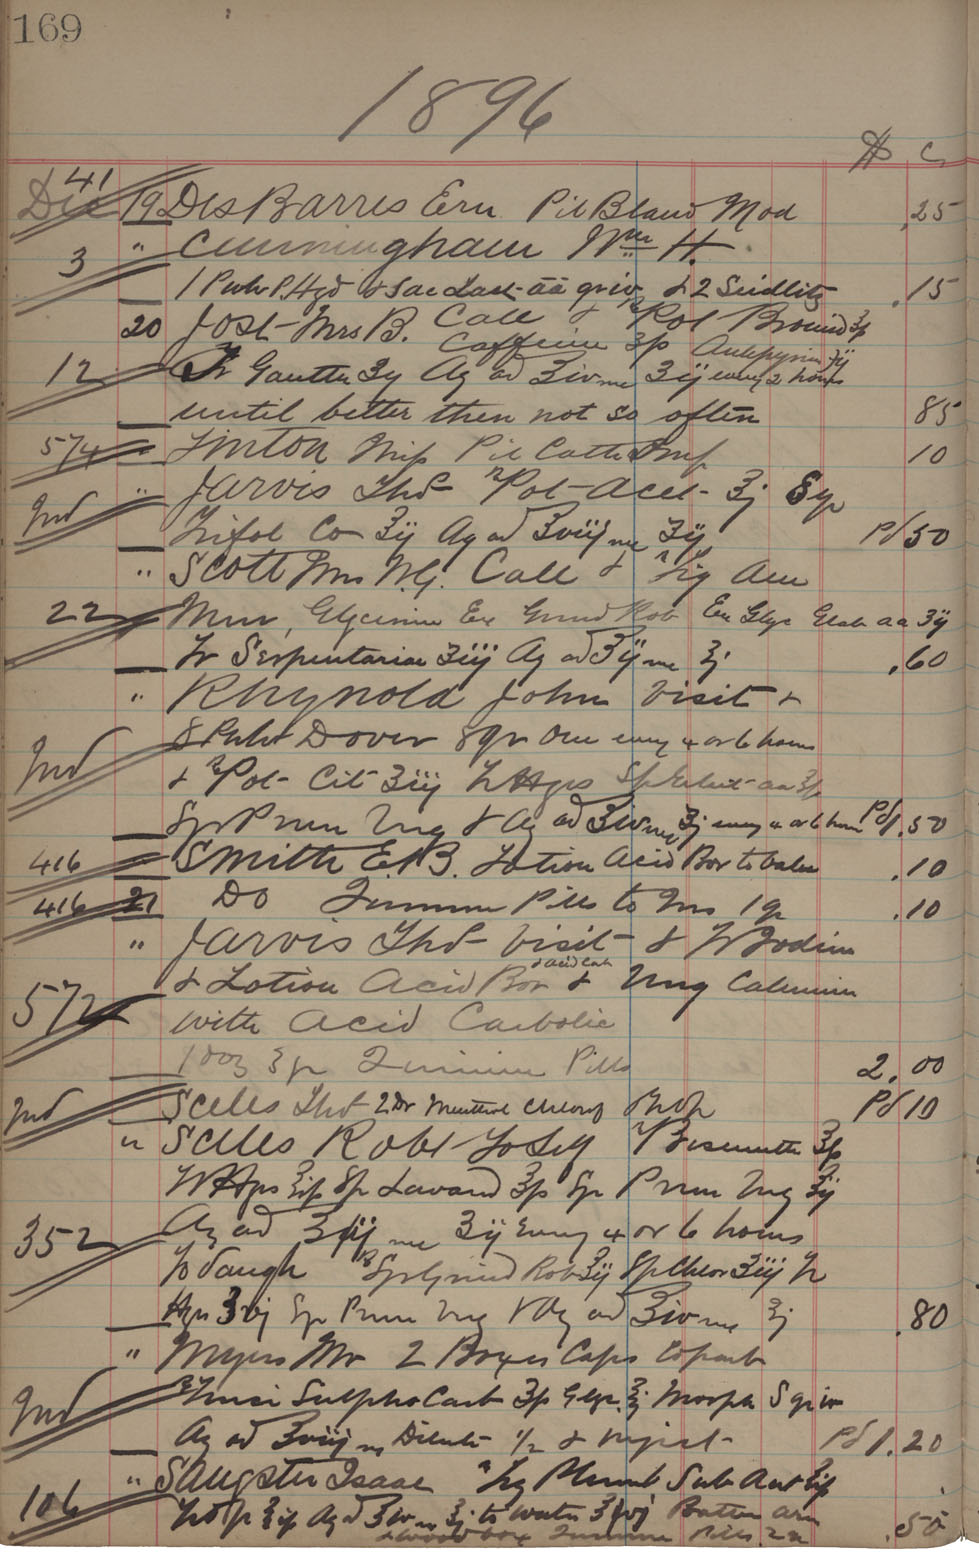 169
1896
$ c
41
Dec 19 DesBarres Ern Pil Blaud Mod .25
3 " Cunningham Wm H.
1 Pulv P. Hyd & Sac Lact āā gr iv & 2 Seidlitz .15
20 Jost Mrs B. Call & Rx Pot Bromid ʒp
Caffeine ʒp Antipyrin ʒij
12 Tr Genttn ʒij Aq ad ℥iv me ʒij every 2 hours
until better then not so often 85
574 Linton Miss Pil Cath Imp 10
" Jarvis Thos Rx Pot Acet ℥j Syr
Ind Trifol Co ℥ij Aq ad ℥viij me ʒij Pd 50
" Scott Mrs W.G. Call & Rx Liq Am
22 Mur, Glycerine Ex Grind Rob Ex Glyc Glab aa ʒij
Tr Serpentariae ʒiij Aq ad ℥ij me ʒj .60
" Rhynold John Visit &
8 Pulv Dover 8 gr One every 4 or 6 hours
Ind & Rx Pot Cit ʒiij Tr Hyos Sp Aeth Nit aa ℥p
Syr Prun Virg & Aq ad ℥iv me ʒj every 4 or 6 hours Pd 1.50
416 Smith E.B. Lotion Acid Bor to Baby .10
416 21 Do Quinine Pills to Mrs 1 gr .10
" Jarvis Thos Visit & Tr Iodine
& Lotion Acid Bor & acid carb & Ung Calamin
572 with Acid Carbolic
1 doz 3 gr Quinine Pills 2.00
Ind Selles Thos 2 Dr Menthol Chlorof Prop Pd 10
" Selles Robt To Self Rx Bismuth ʒp
Tr Hyos ʒip Sp Lavand ʒp Syr Prun Virg ℥ij
352 Aq ad ℥iij me ʒij every 4 or 6 hours
To Daugh Rx Syr Grind Rob ℥ij Sp Chlor ʒiij Tr
Hyos ʒvj Syr Prun Virg & Aq ad ℥iv me ʒj .80
" Myers Mr 2 Boxes Caps Copaib
Ind Rx Zinci Sulpho Carb ʒp Glyc ℥j Morph S gr iv
Aq ad ℥viij me Dilute 1/2 & inject Pd 1.20
" Sangster Isaac Rx Liq Plumb Sub Acet ℥ip
106 Tr Op ℥ip Aq ad ℥iv me ℥j to water ℥vj Bathe arm
& wood box Quinine Pills .50